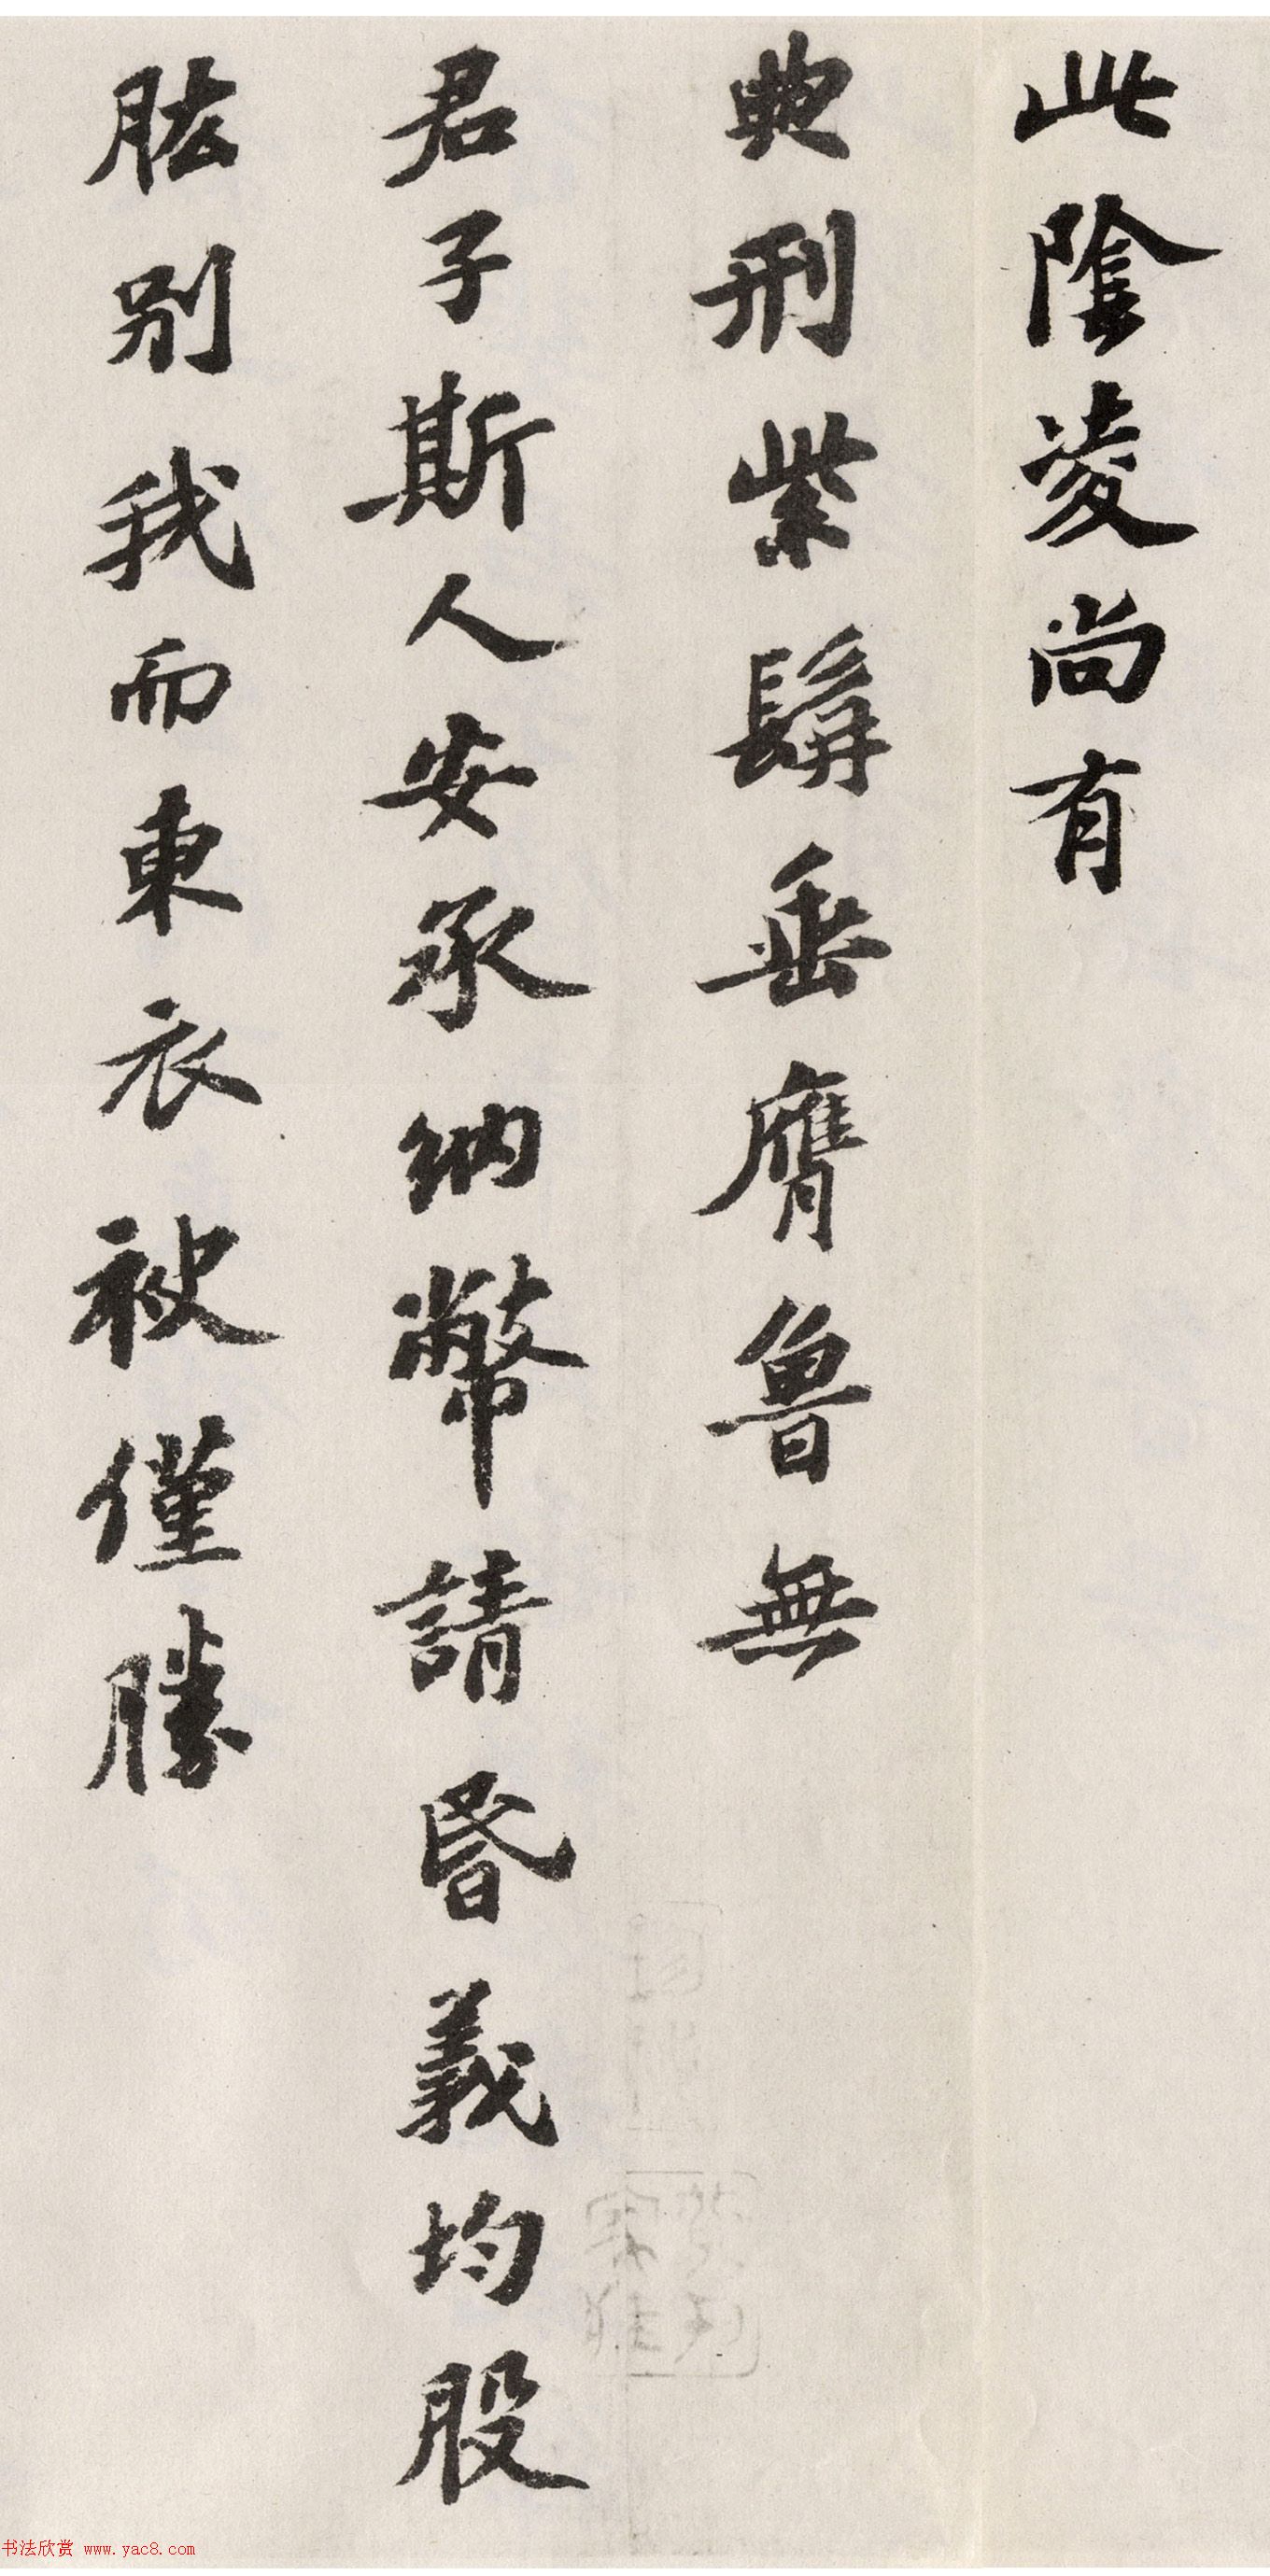 此陰凌尚有
典刑紫髯垂膺魯無
君子斯人安承納幣請昏義均股
肱別我而東衣袂僅勝
书法欣赏 www.yac8.com